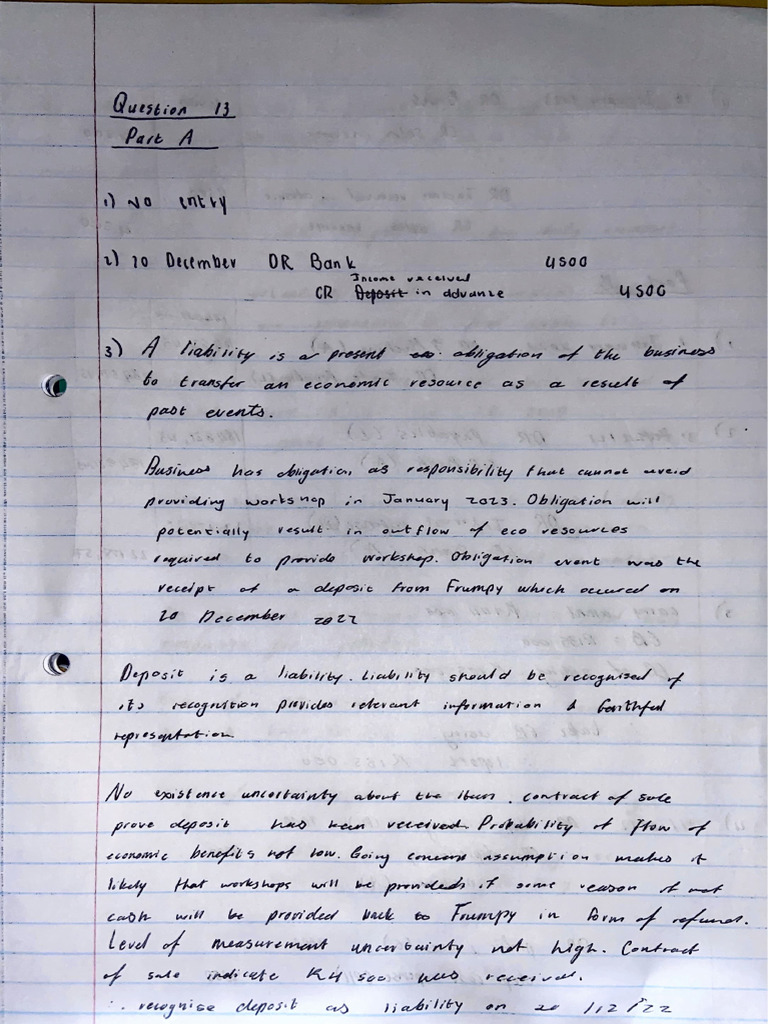 Question 13
Part A
1) No entry
2) 20 December DR Bank 4500
Income received
CR Deposit in advance 4500
3) A liability is a present obligation of the business
to transfer an economic resource as a result of
past events.
Business has obligation as responsibility that cannot avoid
providing workshop in January 2023. Obligation will
potentially result in outflow of eco resources
required to provide workshop. Obligation event was the
receipt of a deposit from Frumpy which occured on
20 December 2022
Deposit is a liability. Liability should be recognised if
its recognition provides relevant information & faithful
representation
No existence uncertainty about the item. contract of sale
prove deposit has been received. Probability of flow of
economic benefits not low. Going concern assumption makes it
likely that workshops will be provided if some reason if not
cash will be provided back to Frumpy in form of refund.
Level of measurement uncertainty not high. Contract
of sale indicate R4 500 was received.
∴ recognise deposit as liability on 20/12/22